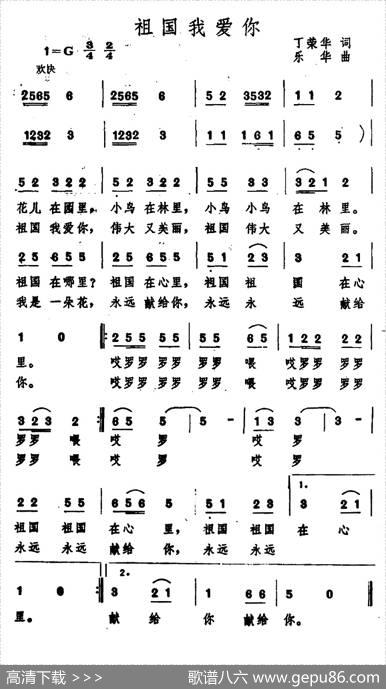 祖国我爱你
1=G 3/4 2/4
丁荣华 词
欢快
乐 华 曲
2565 6 2565 6 52 3532 11 2
1232 3 1232 3 11 161 65 5 )
52 322 522 322 52 52 321 2
花儿 在园里, 小鸟 在林里, 小鸟 小鸟 在 林里。
祖国 我爱你, 伟大 又美丽, 祖国 伟大 又 美丽。
25 655 25 655 25 2 3 21
祖国 在哪里? 祖国 在心里, 祖国 祖 国 在心
我是 一朵花, 永远 献给你, 永远 永 远 献给
1 0 :255 55 55 65 122 22
里。 哎罗罗 罗罗 罗罗 喂 哎罗罗 罗罗
你。 哎罗罗 罗罗 罗罗 喂 哎罗罗 罗罗
323 21 : 65 5 5 - 3 3 -
罗罗 喂 哎 罗 哎 罗
罗罗 喂 哎 罗 哎 罗
1.
22 55 656 5 51 23 3 21
祖国 祖国 在心 里, 祖国 祖国 在 心
永远 永远 献给 你, 永远 永远
2.
1 0 : 3 21 1 66 5 0
里。 献 给 你 献给 你。
高清下载 >>>
歌谱八六 www.gepu86.com